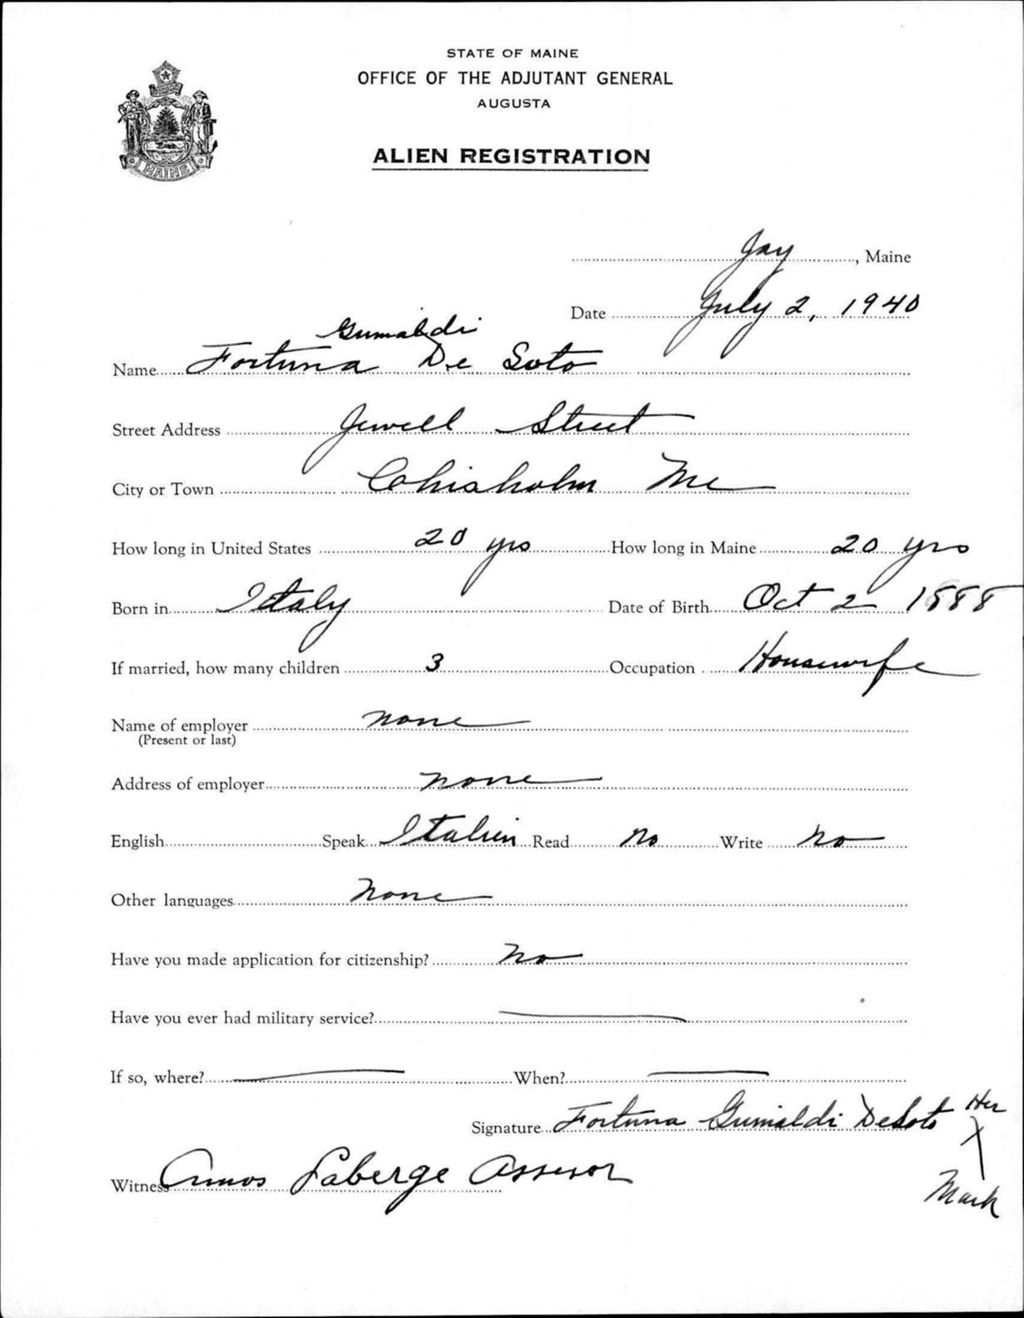 STATE OF MAINE
OFFICE OF THE ADJUTANT GENERAL
AUGUSTA
MAINE
ALIEN REGISTRATION
Jay, Maine
Date July 2, 1940
Gumaldi
Name Fortuna De Soto
Street Address Jewell Street
City or Town Chisholm Me
How long in United States 20 yrs How long in Maine 20 yrs
Born in Italy Date of Birth Oct 2 1888
If married, how many children 3 Occupation Housewife
Name of employer none
(Present or last)
Address of employer none
English Speak Italien Read No Write No
Other languages None
Have you made application for citizenship? No
Have you ever had military service?
If so, where? When?
Signature Fortuna Gumaldi DeSoto Her
X
Mark
Witness Amos Laberge Assessor